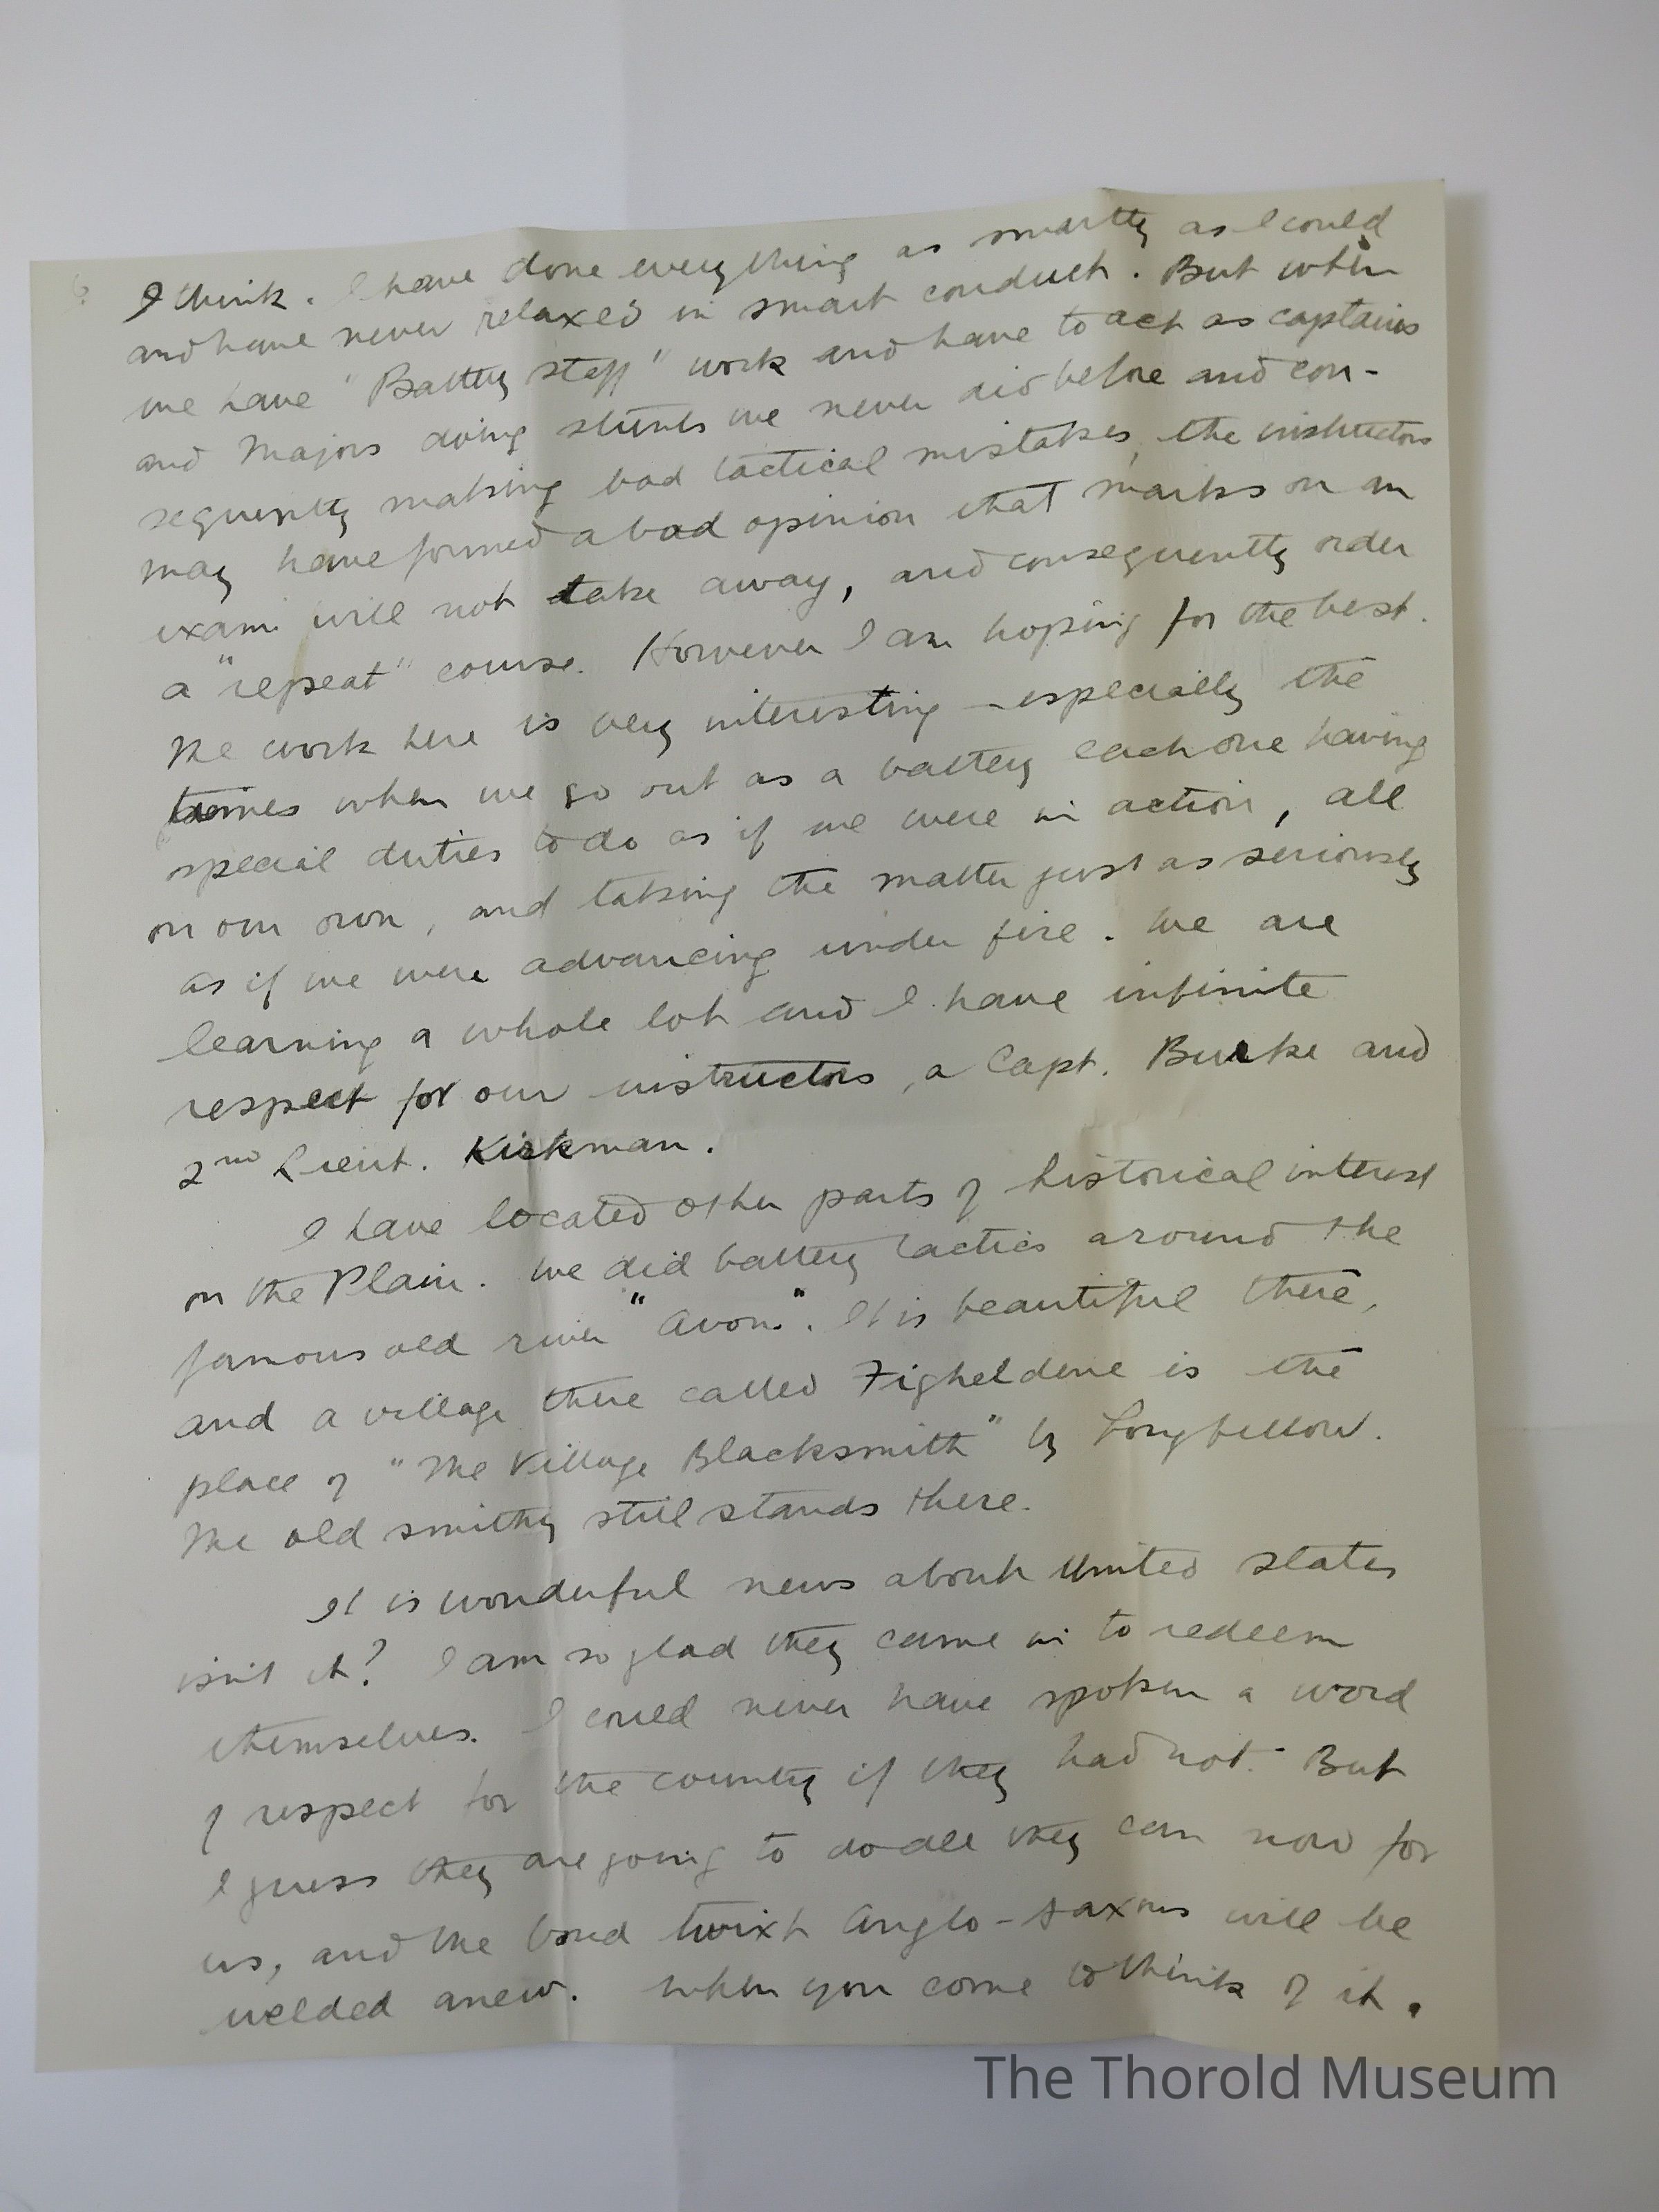 I think. I have done everything as smartly as I could
and have never relaxed in smart conduct. But when
we have "Battery staff" work and have to act as captains
and Majors doing stunts we never did before and con-
sequently making bad tactical mistakes, the instructors
may have formed a bad opinion that marks on an
exam will not take away, and consequently order
a "repeat" course. However I am hoping for the best.
The work here is very interesting - especially the
times when we go out as a battery each one having
special duties to do as if we were in action, all
on our own, and taking the matter just as seriously
as if we were advancing under fire. We are
learning a whole lot and I have infinite
respect for our instructors, a Capt. Burke and
2nd Lieut. Kirkman.
I have located other parts of historical interest
on the Plain. We did battery tactics around the
famous old river "Avon". It is beautiful there,
and a village there called Figheldene is the
place of "The Village Blacksmith" by Longfellow.
The old smithy still stands there.
It is wonderful news about United States
isn't it? I am so glad they came in to redeem
themselves. I could never have spoken a word
of respect for the country if they had not. But
I guess they are going to do all they can now for
us, and the bond twixt Anglo-Saxons will be
welded anew. When you come to think of it.
The Thorold Museum